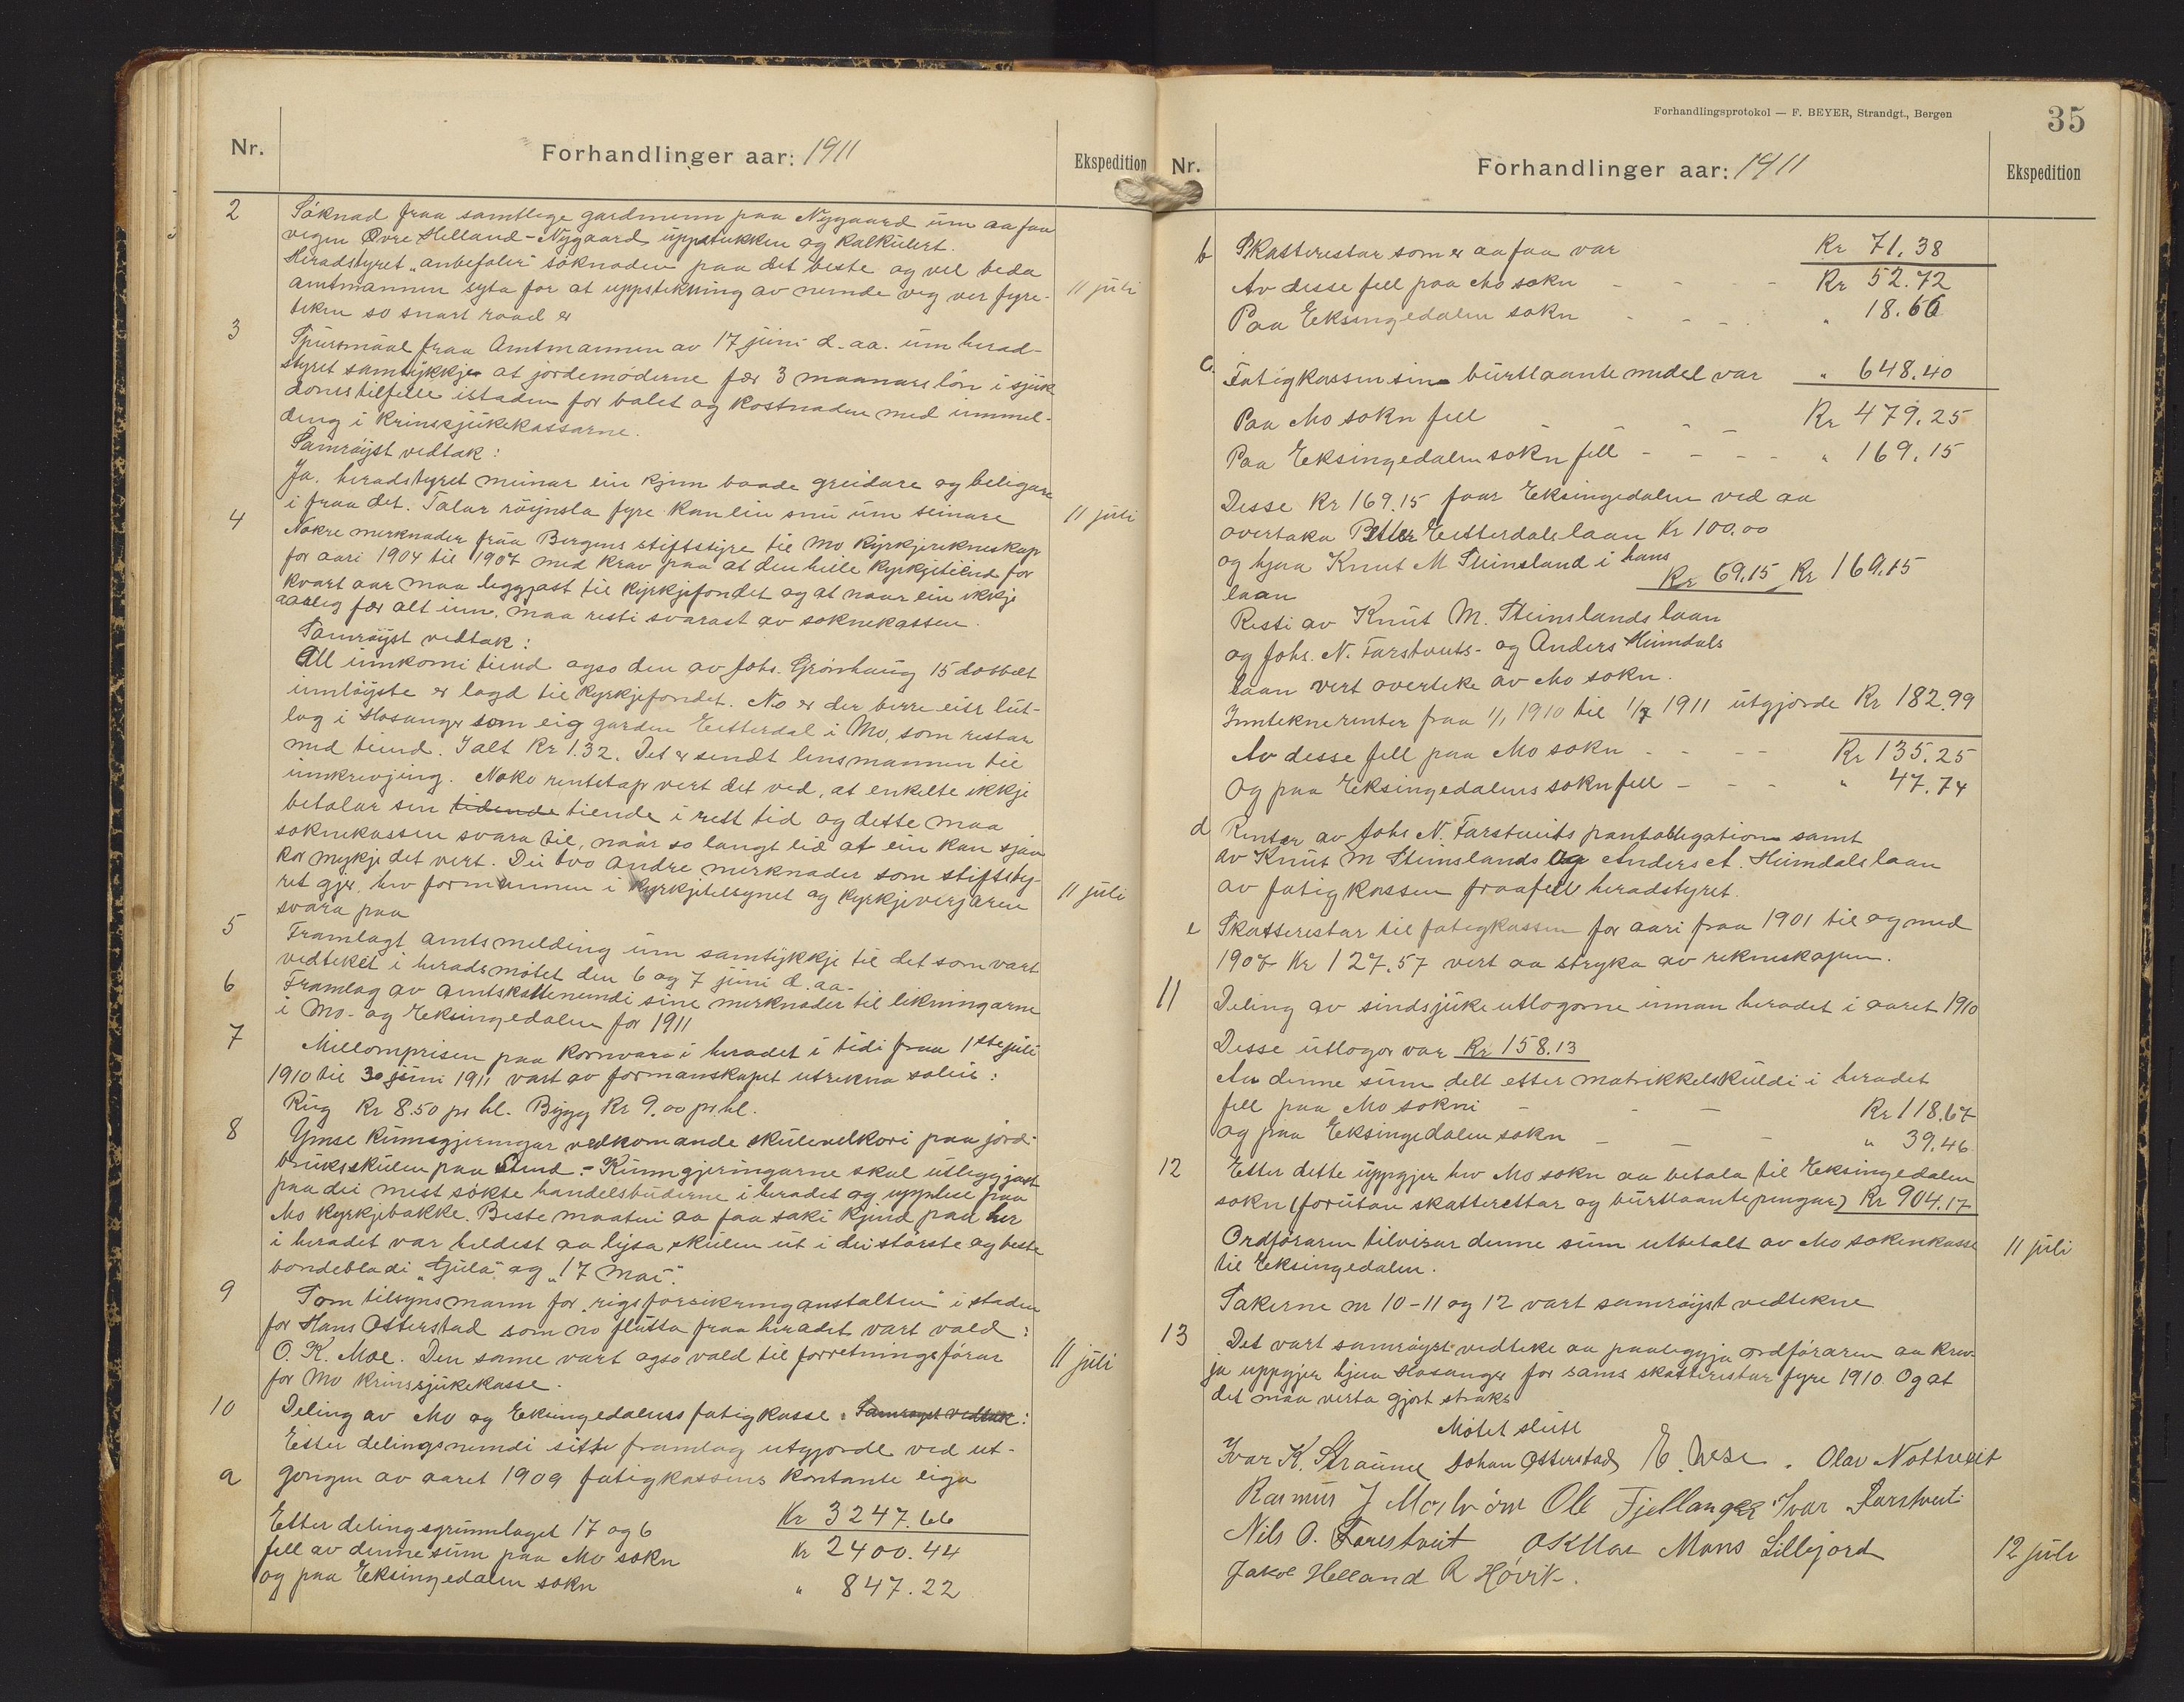 Nr.
Forhandlinger aar: 1911
Ekspedition
2 Søknad fraa samtlege gardmenn paa Nygaard um aa faa
vegen Øvre Helland-Nygaard uppstukken og kalkulert.
Heradstyret "anbefaler" søknaden paa det beste og vil beda
amtmannen syta for at uppstikning av nemde veg ver fyre-
teken so snart raad er
11 juli
3 Spursmaal fraa Amtmannen av 17 juni d.aa. um herad-
styret samtykkjer at jordemøderne fær 3 maanars løn i sjuk
domstilfelle istaden for balet og kostnaden med innmel-
ding i krinssjukekassarne.
Samrøyst vedtak:
Ja. heradstyret meinar ein kjem baade greidare og beligare
i fraa det. Talar røynsla fyre kan ein snu um seinare
11 juli
4 Nokre merknader fraa Bergens stiftstyre til Mo kyrkjerekneskap
for aari 1904 til 1907 med krav paa at den heile kyrkjetiend for
kvart aar maa leggjast til kyrkjefondet og at naar ein ikkje
aarleg fær alt inn, maa resti svarast av soknekassen.
Samrøyst vedtak:
All innkomi tiend ogso den av Johs. Grønhaug 15 dobbelt
innløyste er lagd til kyrkjefondet. No er der berre eitt lut-
lag i Hosanger som eig garden Eitterdal i Mo, som restar
med tiend. I alt Kr 1.32. Det er sendt lensmannen til
innkrevjing. Noko rentetap vert det ved, at enkelte ikkje
betalar sin tidende tiende i rett tid og dette maa
soknekassen svara til, naar so langt lid at ein kan sjaa
kor mykje det vert. Dei tvo andre merknader som stiftsty-
ret gjer, hev formannen i kyrkjetilsynet og kyrkjeverjaren
svara paa
11 juli
5 Framlagt amtsmelding um samtykkje til det som vart
vedteket i heradsmøtet den 6 og 7 juni d.aa.
6 Framlag av amtskattenemdi sine merknader til likningarne
i Mo- og Eksingedalen for 1911
7 Millomprisen paa kornvara i heradet i tidi fraa 1ste juli
1910 til 30 juni 1911 vart av formanskapet utrekna soleis:
Rug Kr 8.50 pr hl. Bygg Kr 9.00 pr hl.
8 Ymse kunngjeringar vedkomande skulevelkori paa jord-
bruksskulen paa Stend. - Kunngjeringarne skal utleggjast
paa dei mest søkte handelsbuderne i heradet og upplese paa
Mo kyrkjebakke. Beste maaten aa faa saki kjend paa her
i heradet var heldest aa lysa skulen ut i dei største og beste
bondebladi "Gula" og "17 Mai".
9 Som tilsynsmann for "rigsforsikringanstalten" i staden
for Hans Otterstad som no flutta fraa heradet vart vald:
O. K. Moe. Den same vart ogso vald til forretningsførar
for Mo krinssjukekasse.
11 juli
10 Deling av Mo og Eksingedalens fatigkasse. Samrøyst vedtak:
Etter delingsnemdi sitt framlag utgjorde ved ut-
a gongen av aaret 1909 fatigkassens kontante eiga
Kr 3247.66
Etter delingsgrunnlaget 17 og 6
fell av denne sum paa Mo sokn Kr 2400.44
og paa Eksingedalen sokn " 847.22
Forhandlingsprotokol — F. BEYER, Strandgt., Bergen
35
Nr.
Forhandlinger aar: 1911
Ekspedition
b Skatterestar som er aa faa var Kr 71.38
Av desse fell paa Mo sokn - - - - Kr 52.72
Paa Eksingedalen sokn - - - " 18.66
c. Fatigkassen sine burtlaante midel var " 648.40
Paa Mo sokn fell - - - - Kr 479.25
Paa Eksingedalen sokn fell - - - - " 169.15
Desse Kr 169.15 faar Eksingedalen ved aa
overtaka Petter Eitterdals laan Kr 100.00
og hjaa Knut M Steinsland i hans
laan Kr 69.15 Kr 169.15
Resti av Knut M. Steinslands laan
og Johs. N. Farstveits- og Anders Heimdals
laan vert overteke av Mo sokn.
Inntekne renter fraa 1/1 1910 til 1/7 1911 utgjorde Kr 182.99
Av desse fell paa Mo sokn - - - - Kr 135.25
Og paa Eksingedalens sokn fell - - - " 47.74
d Renter av Johs N. Farstveits pantobligation samt
av Knut M Steinslands og Anders A. Heimdals laan
av fatigkassen fraafell heradstyret.
e Skatterestar til fatigkassen for aari fraa 1901 til og med
1907 Kr 127.57 vert aa stryka av rekneskapen.
11 Deling av sindsjuke utlogorne innan heradet i aaret 1910
Desse utlogor var Kr 158.13
Av denne sum delt etter matrikkelskuldi i heradet
fell paa Mo sokni - - - Kr 118.67
og paa Eksingedalen sokn - - - " 39.46
12 Etter dette uppgjer hev Mo sokn aa betala til Eksingedalen
sokn (forutan skatterettar og burtlaante pengar) Kr 904.17
Ordføraren tilvisar denne sum utbetalt av Mo sokenkasse
til Eksingedalen.
11 juli
Sakerne nr 10-11 og 12 vart samrøyst vedtekne
13 Det vart samrøyst vedteke aa paaleggja ordføraren aa krev-
ja uppgjer hjaa Hosanger for sams skatterestar fyre 1910. Og at
det maa verta gjort straks
Møtet slutt
Ivar K. Straume Johan Otterstad Olav Nottveit
Rasmus J Ole Fjellanger Ivar Farstveit
Nils O. Farestveit O K Moe Mons Lillejord
Jakob Helland R Høvik.
12 juli